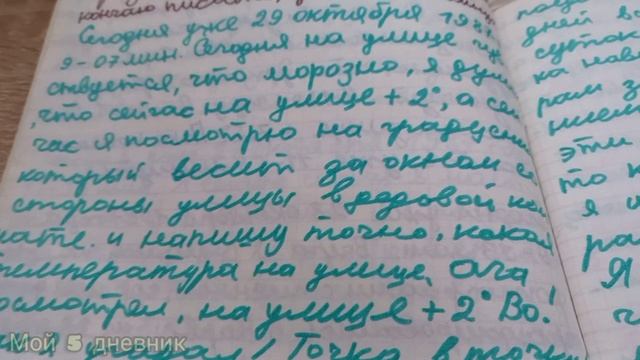 кончаю писать,
Сегодня уже 29 октября 19
9-07 мин. Сегодня на улице чув
ствуется, что морозно, я дум
что сейчас на улице +2°, а сей
час я посмотрю на градусни
который весит за окном со
стороны улицы в дедовой ком
нате. и напишу точно, какая
температура на улице, ага
осмотрел, на улице +2° Во!
угадал! Точка в точк
дней в
суток
ка нав
рам з
эти
то н
я и
ра
Я
Мой 5 дневник